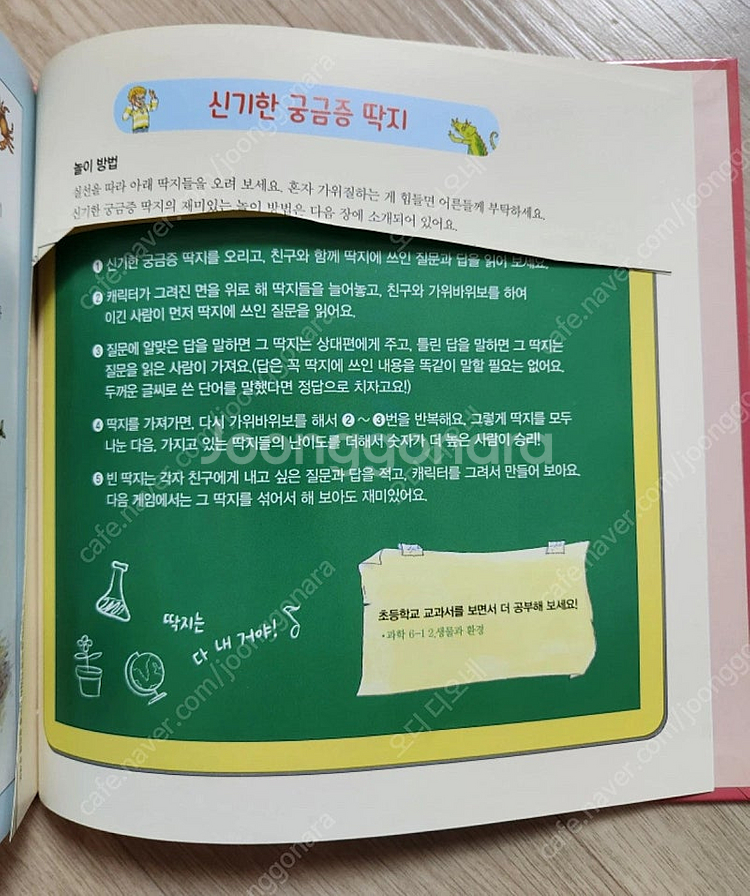 신기한 궁금증 딱지
놀이 방법
실선을 따라 아래 딱지들을 오려 보세요. 혼자 가위질하는 게 힘들면 어른들께 부탁하세요.
신기한 궁금증 딱지의 재미있는 놀이 방법은 다음 장에 소개되어 있어요.
❶ 신기한 궁금증 딱지를 오리고, 친구와 함께 딱지에 쓰인 질문과 답을 읽어 보세요.
❷ 캐릭터가 그려진 면을 위로 해 딱지들을 늘어놓고, 친구와 가위바위보를 하여
이긴 사람이 먼저 딱지에 쓰인 질문을 읽어요.
❸ 질문에 알맞은 답을 말하면 그 딱지는 상대편에게 주고, 틀린 답을 말하면 그 딱지는
질문을 읽은 사람이 가져요.(답은 꼭 딱지에 쓰인 내용을 똑같이 말할 필요는 없어요.
두꺼운 글씨로 쓴 단어를 말했다면 정답으로 치자고요!)
❹ 딱지를 가져가면, 다시 가위바위보를 해서 ❷~❸번을 반복해요. 그렇게 딱지를 모두
나눈 다음, 가지고 있는 딱지들의 난이도를 더해서 숫자가 더 높은 사람이 승리!
❺ 빈 딱지는 각자 친구에게 내고 싶은 질문과 답을 적고, 캐릭터를 그려서 만들어 보아요.
다음 게임에서는 그 딱지를 섞어서 해 보아도 재미있어요.
딱지는
다 내 거야!
초등학교 교과서를 보면서 더 공부해 보세요!
• 과학 6-1 2.생물과 환경
Joonggonara
cafe.naver.com/joonggonara
오디 디오네